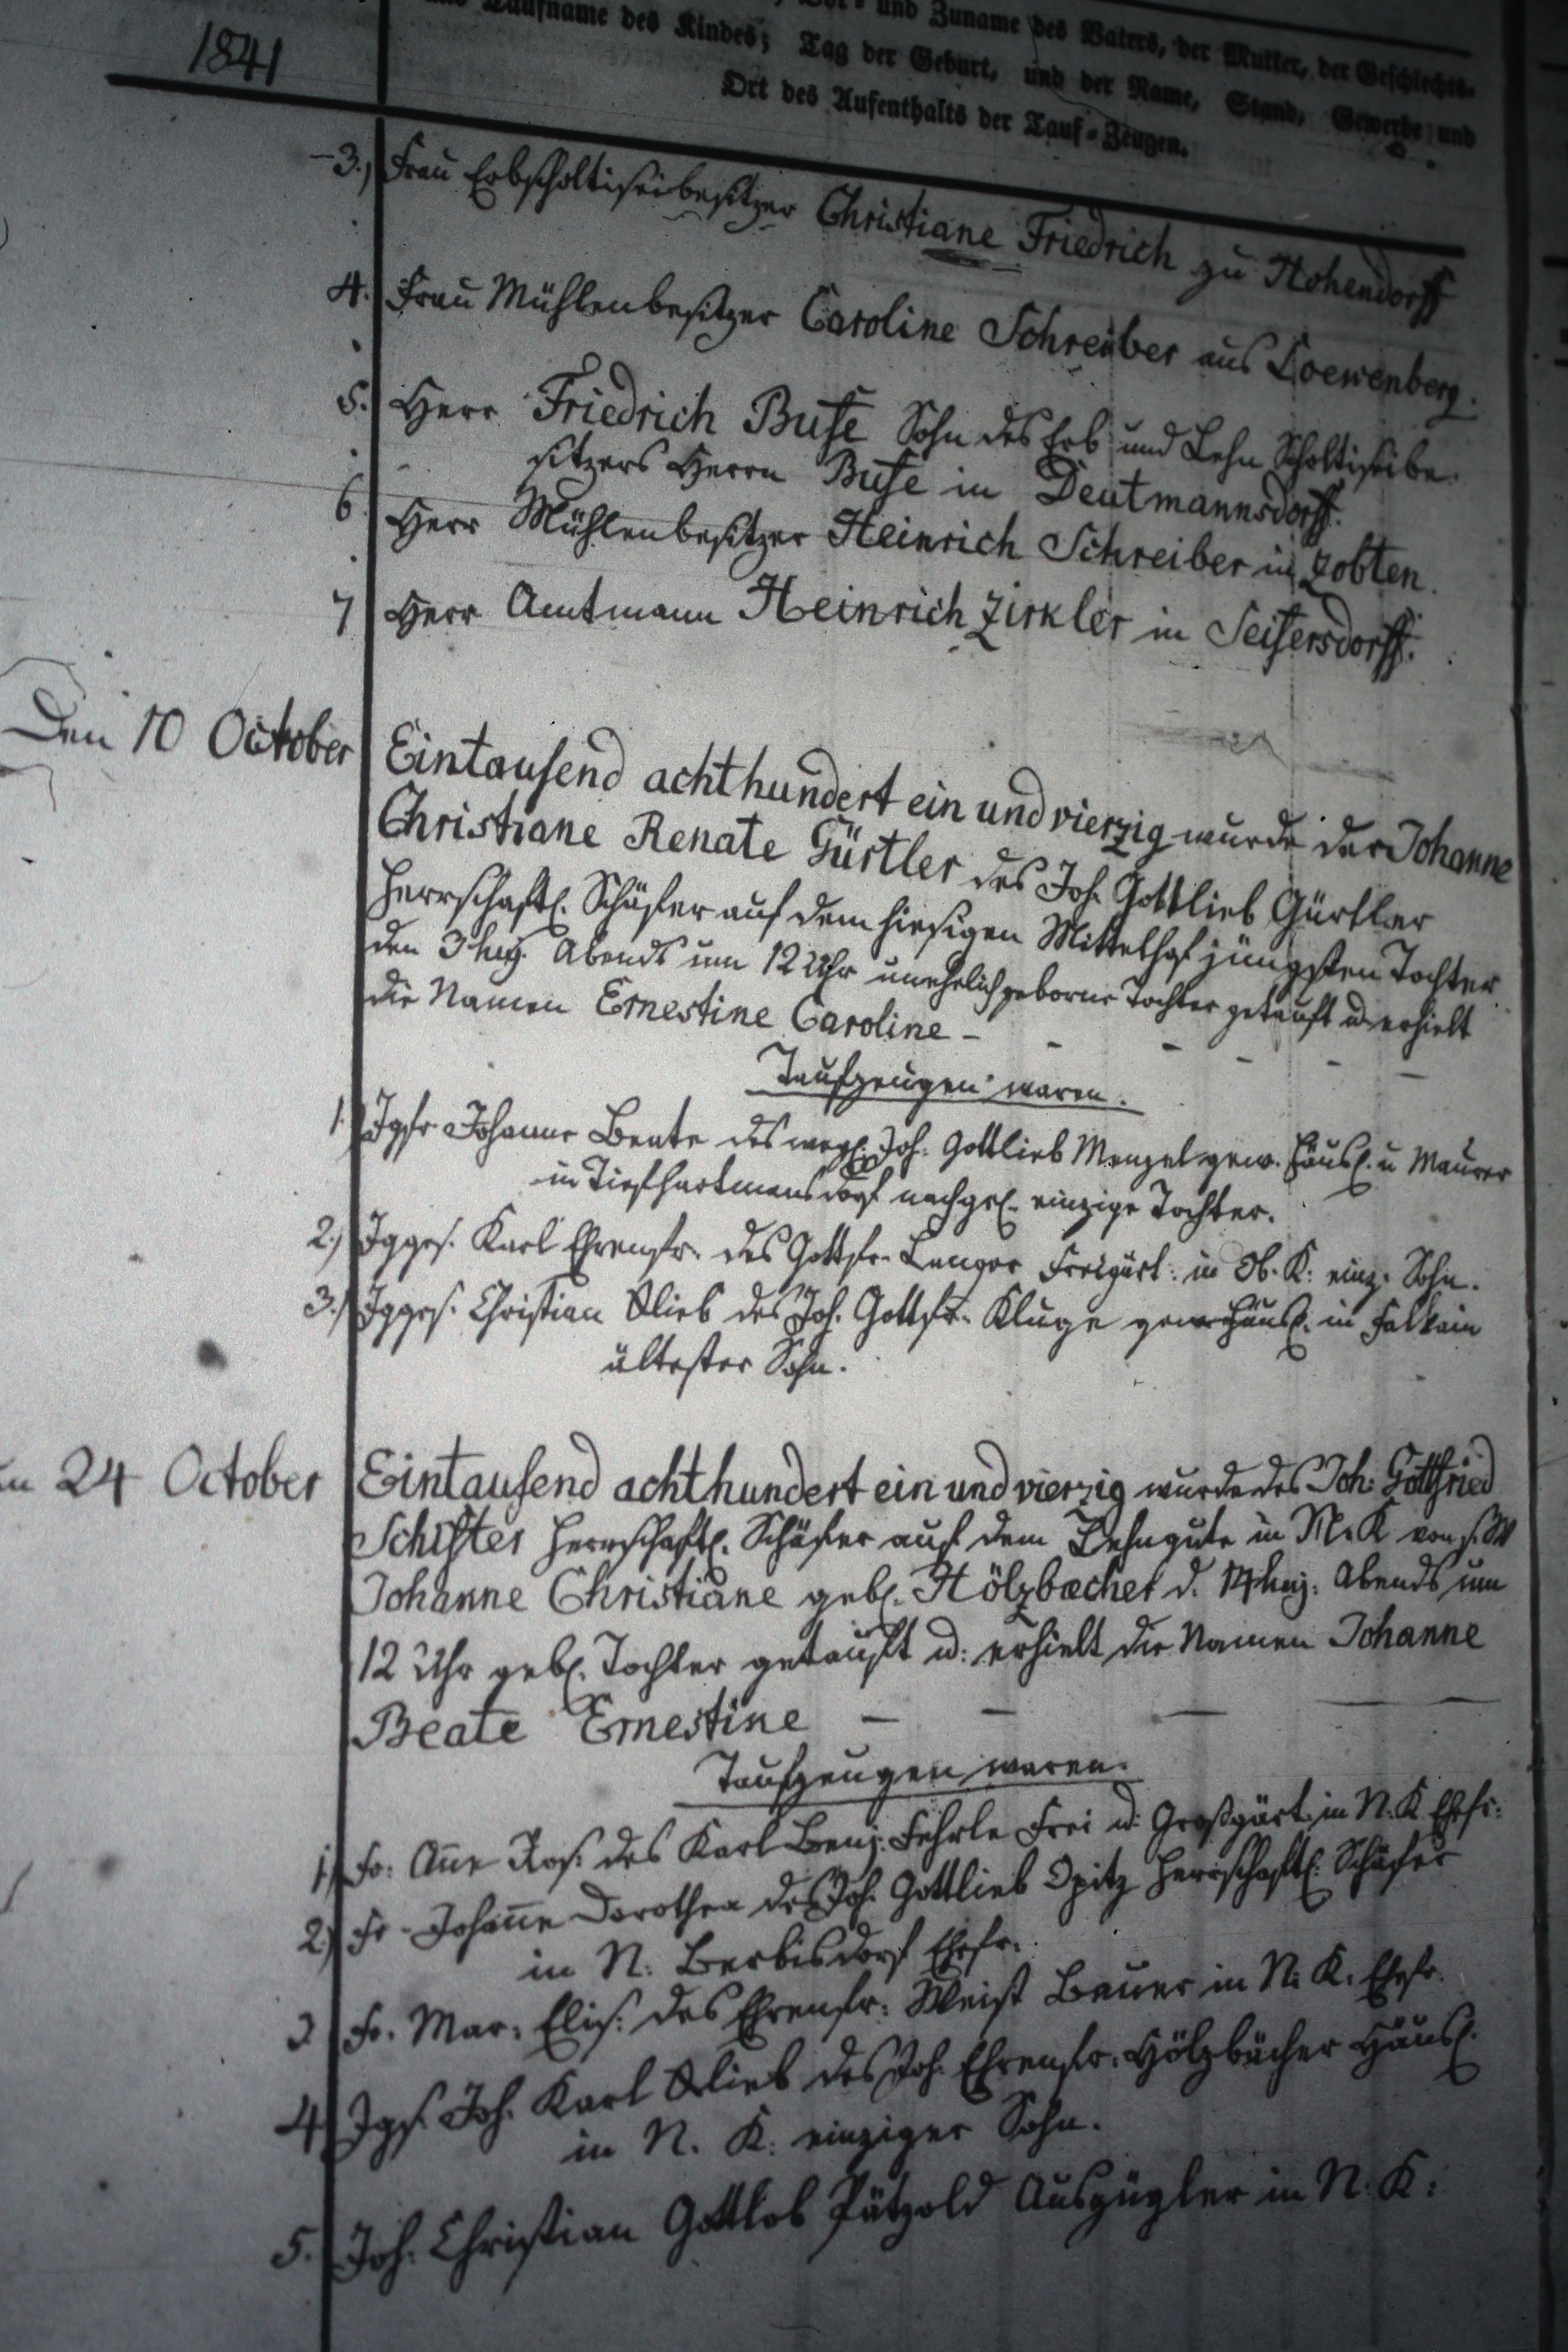 Vor- und Zuname des Vaters, der Mutter, der Geschlechts-
und Taufname des Kindes; Tag der Geburt, und der Name, Stand, Gewerbe und
Ort des Aufenthalts der Tauf-Zeugen.
1841
3.) Frau Erbscholtiseibesitzer Christiane Friedrich zu Hohendorff
4. Frau Mühlenbesitzer Caroline Schreiber aus Loewenberg.
5. Herr Friedrich Buse Sohn des Erb und Lehn Scholtiseibe-
sitzers Herrn Buse in Deutmannsdorff.
6 Herr Mühlenbesitzer Heinrich Schreiber in Zobten.
7 Herr Amtmann Heinrich Zirkler in Seifersdorff.
Den 10 October Eintausend achthundert ein und vierzig wurde der Johanne
Christiane Renate Gürtler des Joh. Gottlieb Gürtler
herrschaftl. Schäfer auf dem hiesigen Mittelhof jüngsten Tochter
den 3 huj. Abends um 12 Uhr unehelich geborne Tochter getauft u. erhielt
die Namen Ernestine Caroline -
Taufzeugen waren.
1.) Jgfr. Johanne Beate des weyl. Joh. Gottlieb Menzel gew. Häusl. u Maurer
in Tiefhartmansdorf nachgel. einzige Tochter.
2.) Jgges. Karl Ehrenfr. des Gottfr. Langer Freigärt. in Ob. K. einz. Sohn.
3.) Jgges. Christian Glieb des Joh. Gottfr. Kluge gew. Häusl. in Falkain
ältester Sohn.
24 October Eintausend achthundert ein und vierzig wurde des Joh. Gottfried
Schifter herrschaftl. Schäfer auf dem Lehngute in M. K von s. W
Johanne Christiane geb. Hölzbecher d. 14 huj. Abends um
12 Uhr geb. Tochter getauft u. erhielt die Namen Johanne
Beate Ernestine
Taufzeugen waren.
1) Fr. Anne Ros. des Karl Benj. Fehrle Frei u. Großgärt. in N. K Ehfr.
2.) Fr. Johanne Dorothea des Joh. Gottlieb Opitz herrschaftl. Schäfer
in N. Berbisdorf Ehefr.
3 Fr. Mar. Elis. des Ehrenfr. Weist Bauer in N. K. Ehefr.
4. Jgs. Joh. Karl Glieb des Joh. Ehrenfr. Hölzbächer Häusl.
in N. K. einziger Sohn.
5. Joh. Christian Gottlob Pätzold Auszügler in N. K.